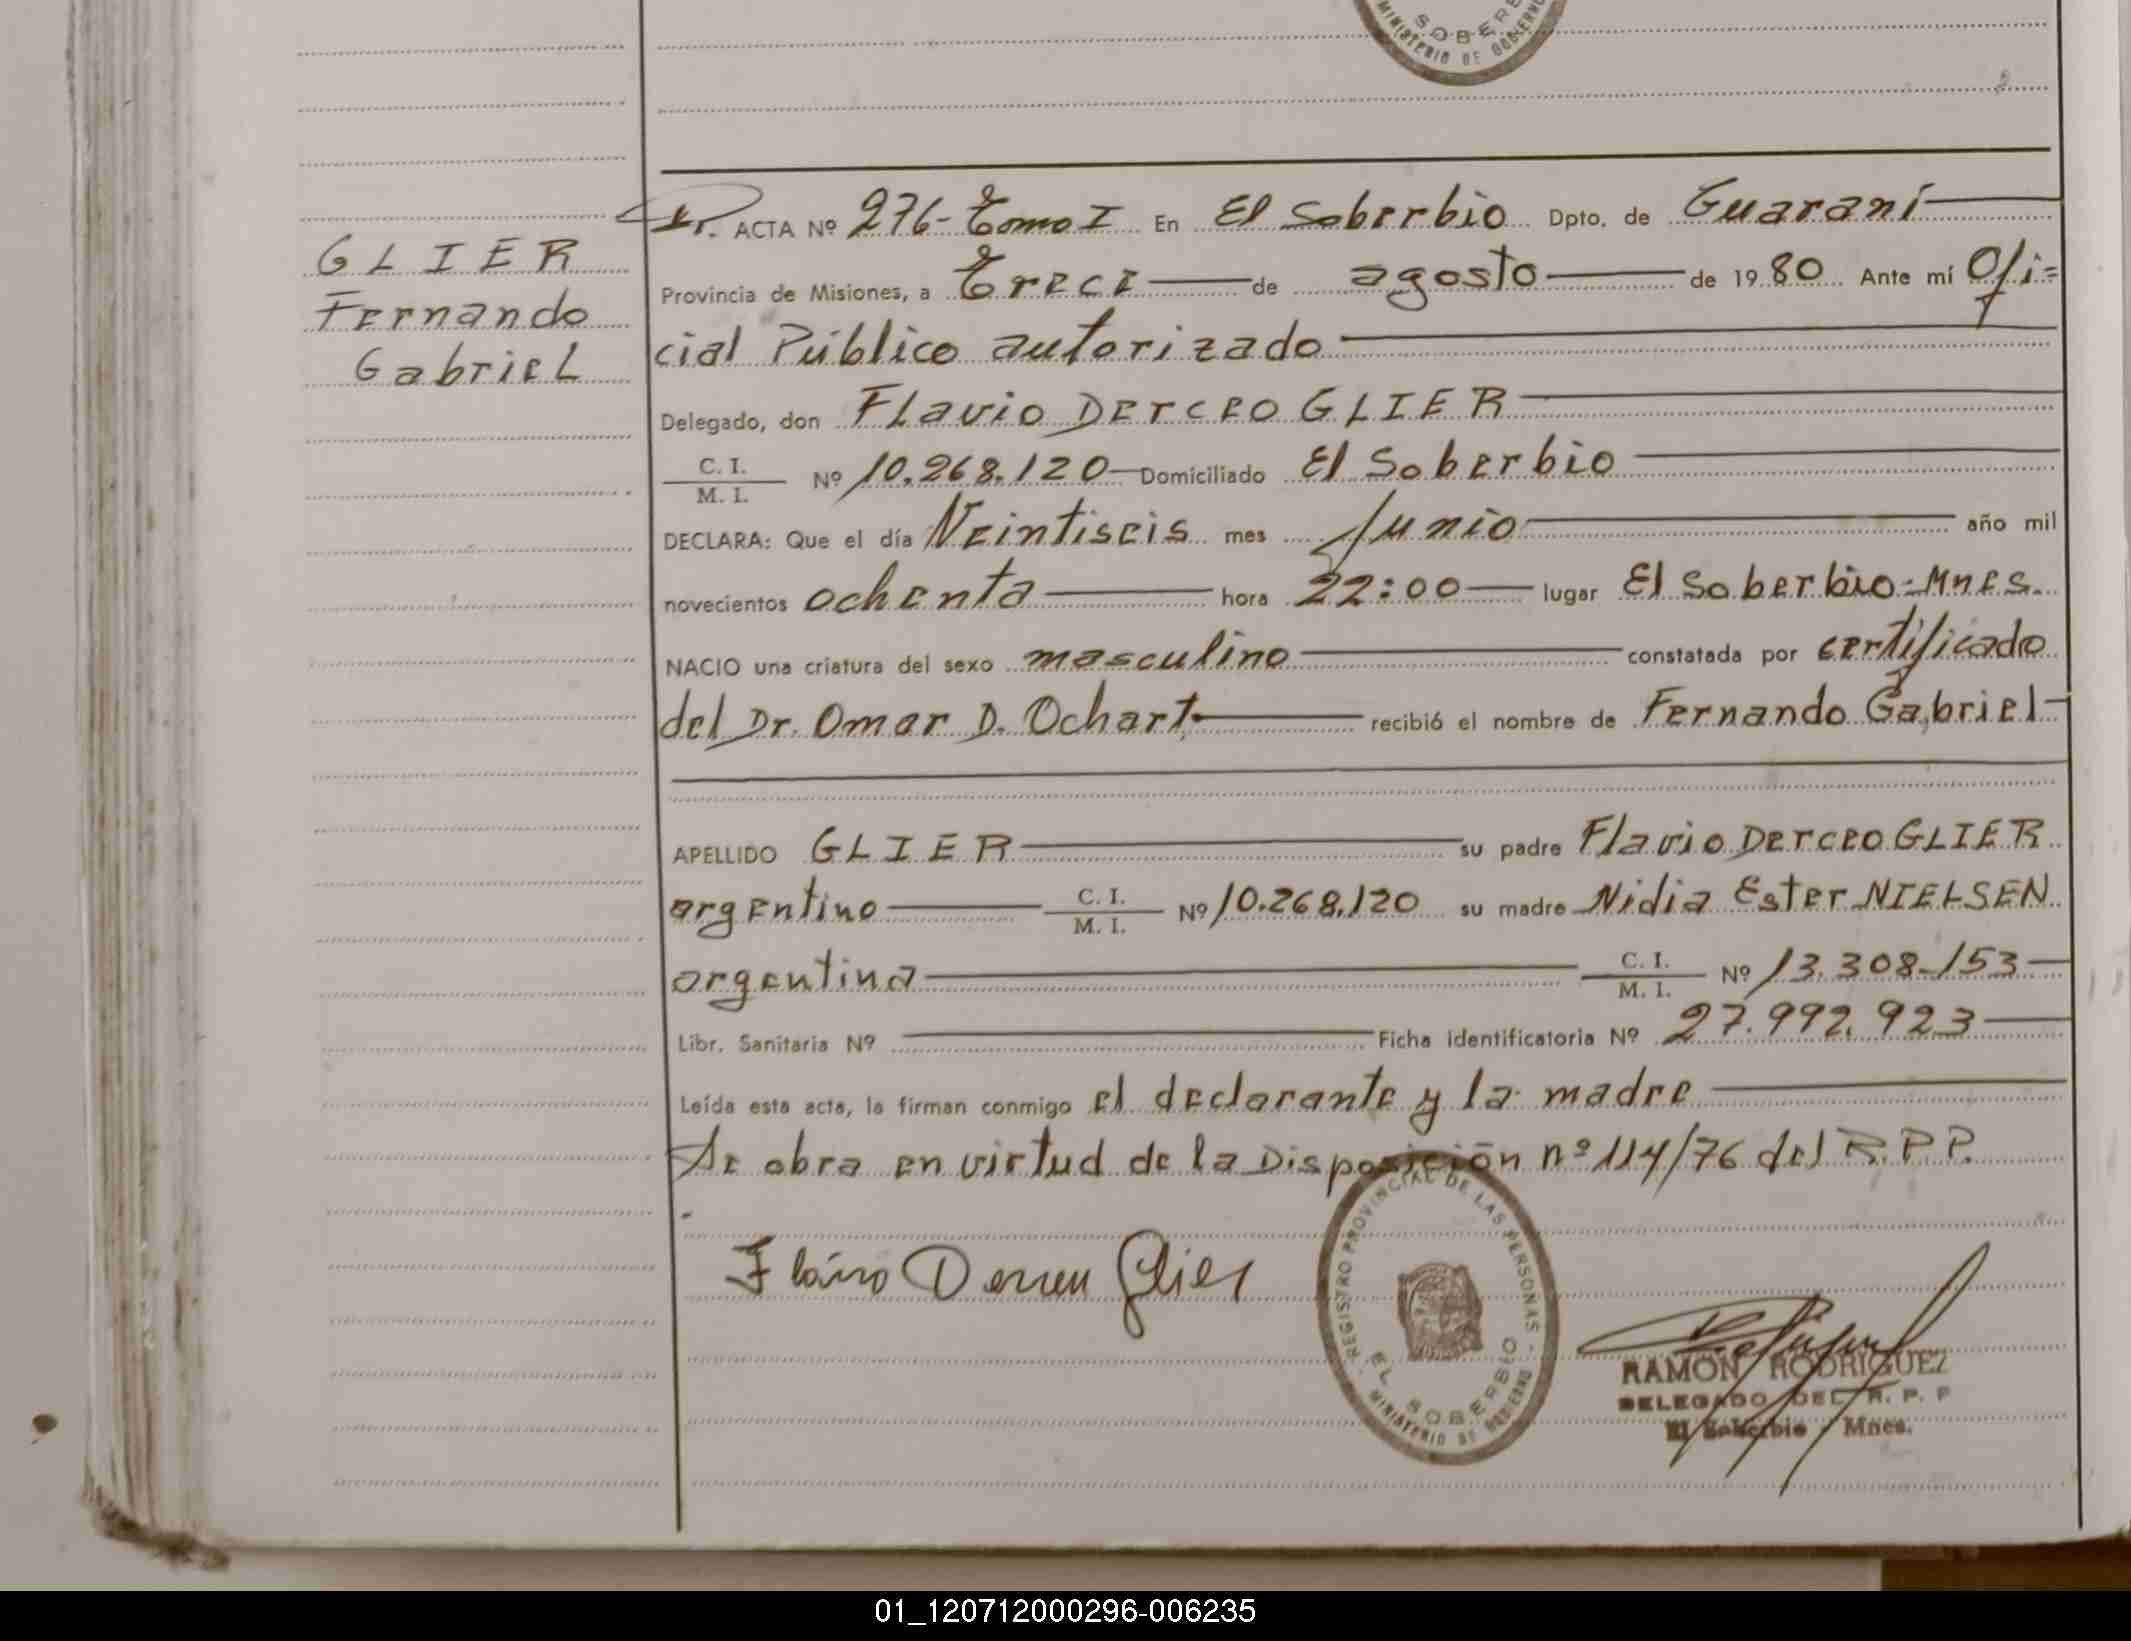 SOBER
MINISTERIO DE GOBIERNO
GLIER
Fernando
Gabriel
ACTA Nº 276- Tomo I En El Soberbio Dpto. de Guaraní
Provincia de Misiones, a Trece de agosto de 1980 Ante mí Ofi=
cial Público autorizado
Delegado, don Flavio DERCEO GLIER
C. I.
M. I. Nº 10.268.120 Domiciliado El Soberbio
DECLARA: Que el día Veintiseis mes Junio año mil
novecientos ochenta hora 22:00 lugar El Soberbio-Mnes.
NACIO una criatura del sexo masculino constatada por certificado
del Dr. Omar D. Ochart recibió el nombre de Fernando Gabriel
APELLIDO GLIER su padre Flavio DERCEO GLIER
argentino C. I. M. I. Nº 10.268.120 su madre Nidia Ester NIELSEN
argentina C. I. M. I. Nº 13.308.153
Libr. Sanitaria Nº Ficha identificatoria Nº 27.992.923
Leída esta acta, la firman conmigo el declarante y la madre
Se obra en virtud de la Disposición nº 114/76 del R.P.P.
REGISTRO PROVINCIAL DE LAS PERSONAS
EL SOBERBIO
MINISTERIO DE GOBIERNO
RAMÓN RODRIGUEZ
DELEGADO DEL R. P. P
El Soberbio - Mnes.
01_120712000296-006235